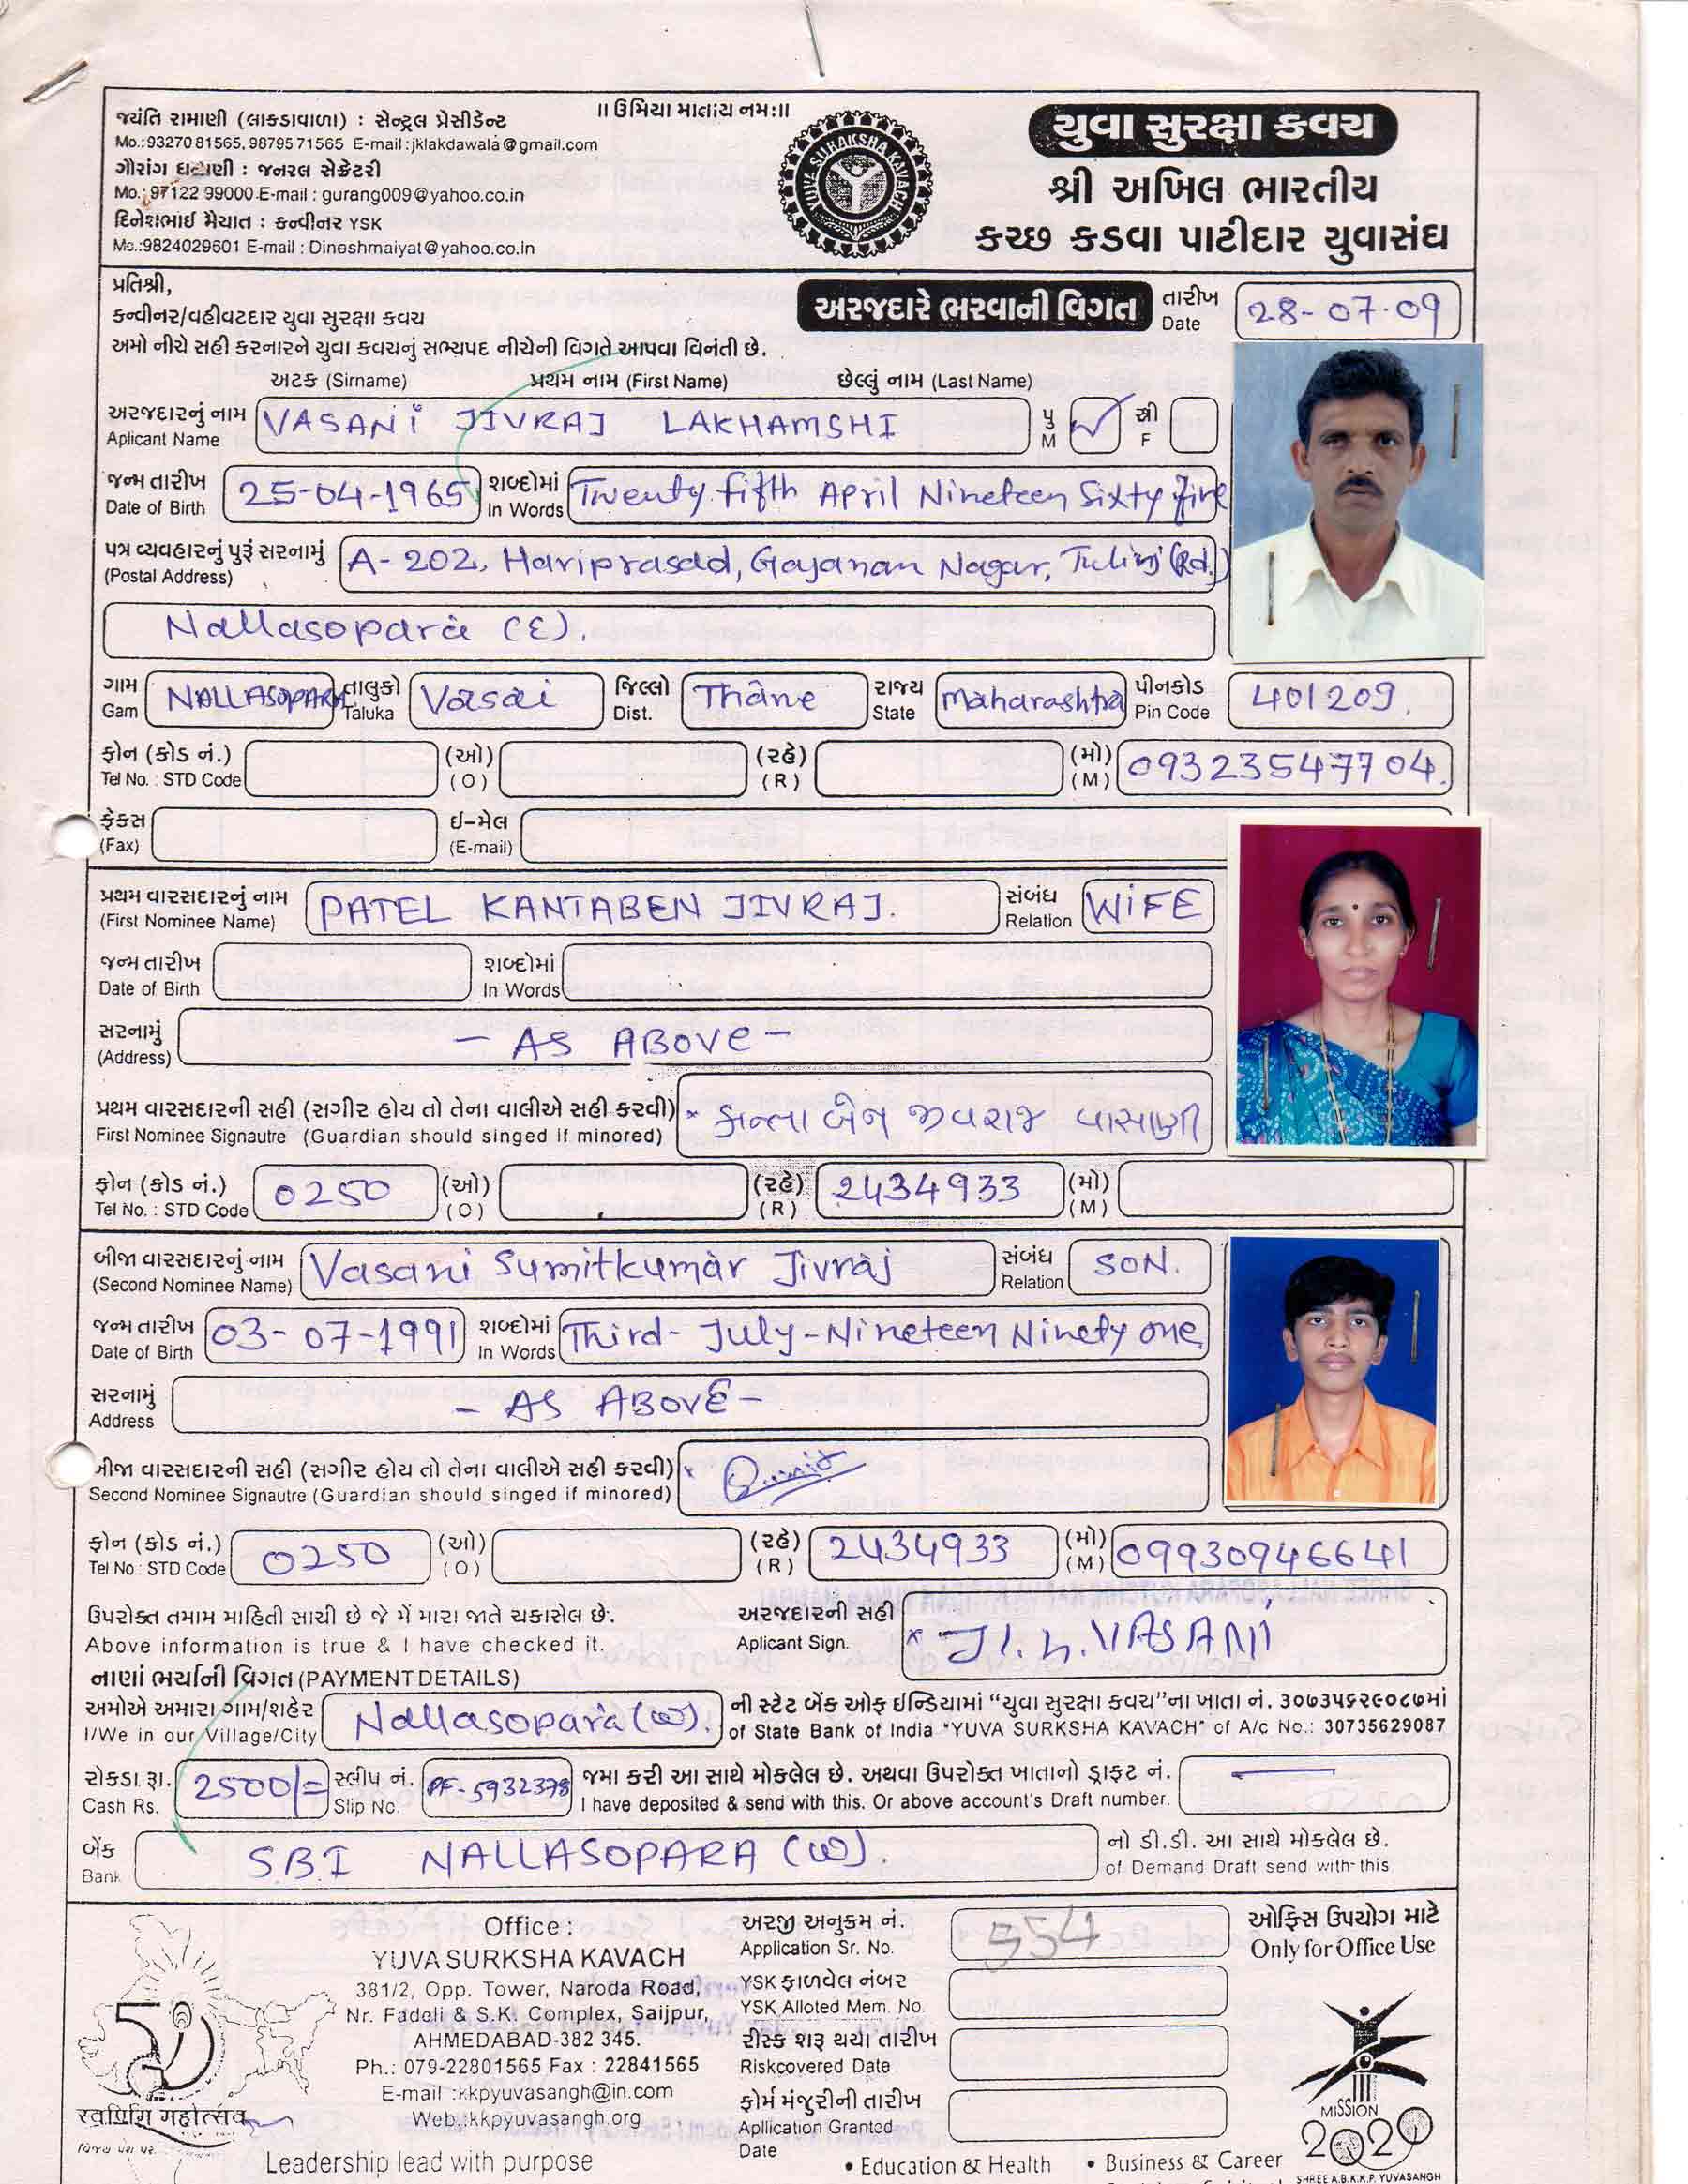 ॥ ઉમિયા માતાય નમઃ॥
જયંતિ રામાણી (લાકડાવાળા) : સેન્ટ્રલ પ્રેસીડેન્ટ
Mo.:9327081565, 9879571565 E-mail : jklakdawala@gmail.com
ગૌરાંગ : જનરલ સેક્રેટરી
Mo.: 97122 99000 E-mail : gurang009@yahoo.co.in
દિનેશભાઈ મૈયાત : કન્વીનર YSK
Mo.:9824029601 E-mail : Dineshmaiyat@yahoo.co.in
YUVA SURAKSHA KAVACH
યુવા સુરક્ષા કવચ
શ્રી અખિલ ભારતીય
કચ્છ કડવા પાટીદાર યુવાસંઘ
પ્રતિશ્રી,
કન્વીનર/વહીવટદાર યુવા સુરક્ષા કવચ
અમો નીચે સહી કરનારને યુવા કવચનું સભ્યપદ નીચેની વિગતે આપવા વિનંતી છે.
અરજદારે ભરવાની વિગત
તારીખ
Date 28-07-09
અટક (Sirname) પ્રથમ નામ (First Name) છેલ્લું નામ (Last Name)
અરજદારનું નામ
Aplicant Name VASANI JIVRAJ LAKHAMSHI પુ M ✓ સ્ત્રી F
જન્મ તારીખ
Date of Birth 25-04-1965 શબ્દોમાં In Words Twenty fifth April Nineteen Sixty Five
પત્ર વ્યવહારનું પુરૂં સરનામું
(Postal Address) A-202, Hariprasad, Gajanan Nagar, Tulinj (Rd.)
Nallasopara (E).
ગામ Gam NALLASOPARA તાલુકો Taluka Vasai જિલ્લો Dist. Thane રાજ્ય State Maharashtra પીનકોડ Pin Code 401209.
ફોન (કોડ નં.) (ઓ) (રહે) (મો)
Tel No. : STD Code (O) (R) (M) 09323547704.
ફેક્સ ઈ-મેલ
(Fax) (E-mail)
પ્રથમ વારસદારનું નામ
(First Nominee Name) PATEL KANTABEN JIVRAJ. સંબંધ Relation WIFE
જન્મ તારીખ શબ્દોમાં
Date of Birth In Words
સરનામું
(Address) - AS ABOVE -
પ્રથમ વારસદારની સહી (સગીર હોય તો તેના વાલીએ સહી કરવી)
First Nominee Signautre (Guardian should singed if minored) × કાન્તાબેન જીવરાજ વાસાણી
ફોન (કોડ નં.) (ઓ) (રહે) (મો)
Tel No. : STD Code 0250 (O) (R) 2434933 (M)
બીજા વારસદારનું નામ
(Second Nominee Name) Vasani Sumitkumar Jivraj સંબંધ Relation SON.
જન્મ તારીખ
Date of Birth 03-07-1991 શબ્દોમાં In Words Third-July-Nineteen Ninety one
સરનામું
Address - AS ABOVE -
બીજા વારસદારની સહી (સગીર હોય તો તેના વાલીએ સહી કરવી)
Second Nominee Signautre (Guardian should singed if minored) × Sumit
ફોન (કોડ નં.) (ઓ) (રહે) (મો)
Tel No : STD Code 0250 (O) (R) 2434933 (M) 09930946641
ઉપરોક્ત તમામ માહિતી સાચી છે જે મેં મારા જાતે ચકાસેલ છે. અરજદારની સહી
Above information is true & I have checked it. Aplicant Sign. × J. L. VASANI
નાણાં ભર્યાની વિગત (PAYMENT DETAILS)
અમોએ અમારા ગામ/શહેર Nallasopara (W). ની સ્ટેટ બેંક ઓફ ઈન્ડિયામાં "યુવા સુરક્ષા કવચ"ના ખાતા નં. ૩૦૭૩૫૬૨૯૦૮૭માં
I/We in our Village/City of State Bank of India "YUVA SURKSHA KAVACH" of A/c No.: 30735629087
રોકડા રૂા. 2500/= સ્લીપ નં. PF-5932378 જમા કરી આ સાથે મોકલેલ છે. અથવા ઉપરોક્ત ખાતાનો ડ્રાફ્ટ નં.
Cash Rs. Slip No. I have deposited & send with this. Or above account's Draft number.
બેંક S.B.I NALLASOPARA (W). નો ડી.ડી. આ સાથે મોકલેલ છે.
Bank of Demand Draft send with-this
Office :
YUVA SURKSHA KAVACH
381/2, Opp. Tower, Naroda Road,
Nr. Fadeli & S.K. Complex, Saijpur,
AHMEDABAD-382 345.
Ph.: 079-22801565 Fax : 22841565
E-mail :kkpyuvasangh@in.com
Web.:kkpyuvasangh.org
અરજી અનુક્રમ નં.
Application Sr. No. 554
YSK ફાળવેલ નંબર
YSK Alloted Mem. No.
રીસ્ક શરૂ થયા તારીખ
Riskcovered Date
ફોર્મ મંજુરીની તારીખ
Apllication Granted
Date
ઓફિસ ઉપયોગ માટે
Only for Office Use
50
महोत्सव
MISSION
2020
SHREE A.B.K.K.P. YUVASANGH
Leadership lead with purpose
• Education & Health • Business & Career